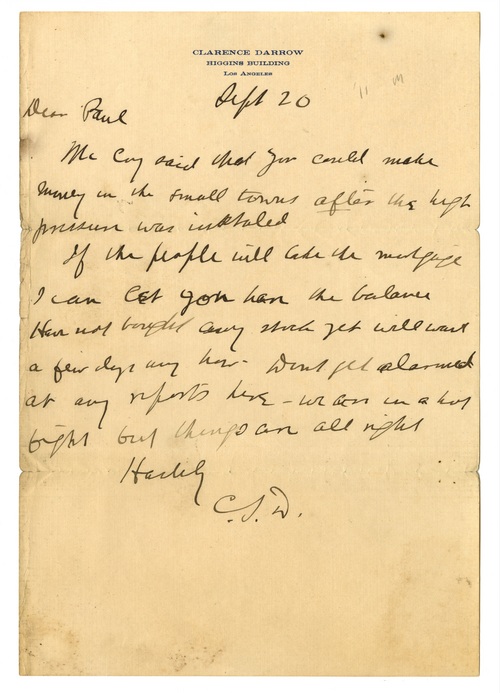 CLARENCE DARROW
HIGGINS BUILDING
LOS ANGELES
'11
Sept 20
Dear Paul
Mc Coy said that you could make
money in the small towns after the high
pressure was installed
If the people will take the mortgage
I can let you have the balance
Have not bought any stock yet will wait
a few days any how - Dont get alarmed
at any reports here - we are in a hot
fight but things are all right
Hastily
C.S.D.